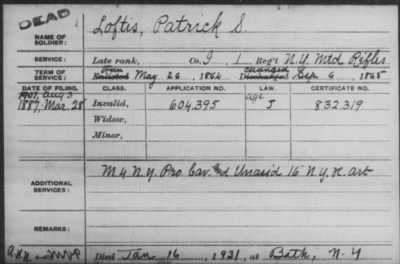 DEAD
NAME OF SOLDIER: Loftis, Patrick S.
SERVICE: Late rank, Co. I, 1 Reg't N.Y. Mtd Rifles
TERM OF SERVICE: Enlisted May 26, 1864 changed Discharged Sep. 6, 1865
DATE OF FILING. CLASS. APPLICATION NO. LAW. CERTIFICATE NO.
1907, Aug 3 age
1887, Mar. 28 Invalid, 604.395 J 832.319
Widow,
Minor,
ADDITIONAL SERVICES: M 4 N.Y. Pro. Cav. and Unasid 15 N.Y. H. art
REMARKS:
Died Jan 16, 1921, at Bath, N.Y